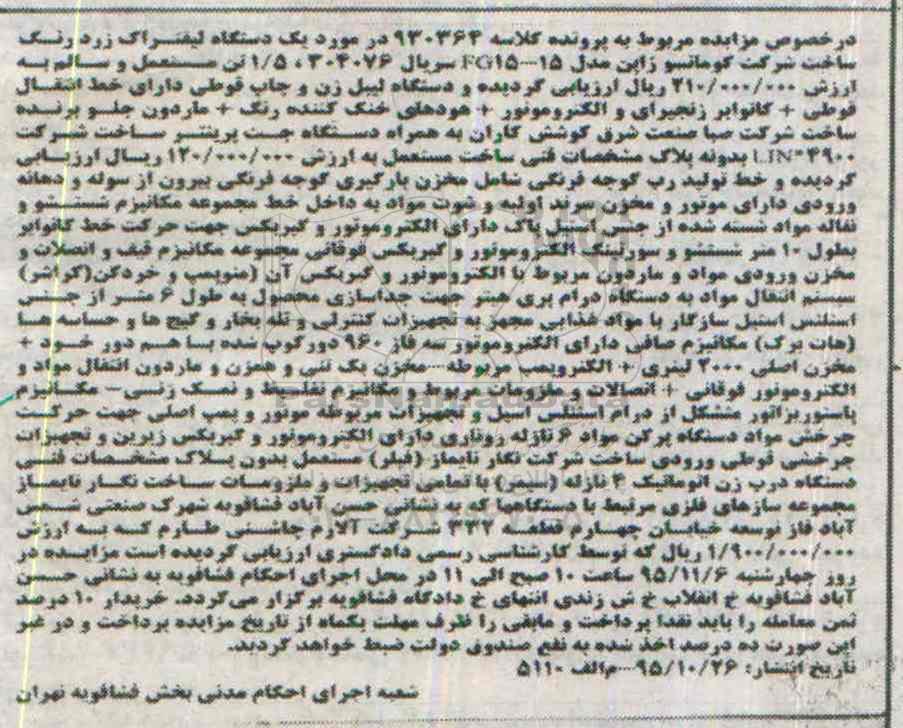 درخصوص مزایده مربوط به پرونده کلاسه ۹۳۰۳۶۴ در مورد یک دستگاه لیفتراک زرد رنگ
ساخت شرکت کوماتسو ژاپن مدل ۱۵-FG15 سریال ۳۰۴۰۷۶، ۱/۵ تن مستعمل و سالم به
ارزش ۲۱۰/۰۰۰/۰۰۰ ریال ارزیابی گردیده و دستگاه لیبل زن و چاپ قوطی دارای خط انتقال
قوطی + کانوایر زنجیرای و الکتروموتور + هودهای خنک کننده رنگ + ماردون جلو برنده
ساخت شرکت صبا صنعت شرق کوشش کاران به همراه دستگاه جت پرینتر ساخت شرکت
LINX ۴۹۰۰ بدونه پلاک مشخصات فنی ساخت مستعمل به ارزش ۱۲۰/۰۰۰/۰۰۰ ریال ارزیابی
گردیده و خط تولید رب گوجه فرنگی شامل مخزن بارگیری گوجه فرنگی بیرون از سوله و دهانه
ورودی دارای موتور و مخزن سرند اولیه و شوت مواد به داخل خط مجموعه مکانیزم شستشو و
تفاله مواد شسته شده از جنس استیل پاک دارای الکتروموتور و گیربکس جهت حرکت خط کانوایر
بطول ۱۰ متر شستشو و سورتینگ الکتروموتور و گیربکس فوقانی مجموعه مکانیزم قیف و اتصالات و
مخزن ورودی مواد و ماردون مربوط با الکتروموتور و گیربکس آن (منوپمپ و خردکن(کراشر)
سیستم انتقال مواد به دستگاه درام پری هیتر جهت جداسازی محصول به طول ۶ متر از جنس
استنلس استیل سازگار با مواد غذایی مجهز به تجهیزات کنترلی و تله بخار و گیج ها و حساسه ها
(هات برک) مکانیزم صافی دارای الکتروموتور سه فاز ۹۶۰ دورکوپ شده با هم دور خود +
مخزن اصلی ۲۰۰۰ لیتری + الکتروپمپ مربوطه-مخزن یک تنی و همزن و ماردون انتقال مواد و
الکتروموتور فوقانی + اتصالات و ملزومات مربوط و مکانیزم تغلیظ و نمک زنی - مکانیزم
پاستوریزاتور متشکل از درام استنلس استیل و تجهیزات مربوطه موتور و پمپ اصلی جهت حرکت
چرخش مواد دستگاه پرکن مواد ۶ نازله روتاری دارای الکتروموتور و گیربکس زیرین و تجهیزات
چرخشی قوطی ورودی ساخت شرکت نگار تایماز (فیلر) مستعمل بدون پلاک مشخصات فنی
دستگاه درب زن اتوماتیک ۴ نازله (سیمر) با تمامی تجهیزات و ملزومات ساخت نگار تایماز
مجموعه سازهای فلزی مرتبط با دستگاهها که به نشانی حسن آباد فشافویه شهرک صنعتی شمس
آباد فاز توسعه خیابان چهارم قطعه ۳۳۲ شرکت آلارم چاشنی طارم که به ارزش
۱/۹۰۰/۰۰۰/۰۰۰ ریال که توسط کارشناسی رسمی دادگستری ارزیابی گردیده است مزایده در
روز چهارشنبه ۹۵/۱۱/۶ ساعت ۱۰ صبح الی ۱۱ در محل اجرای احکام فشافویه به نشانی حسن
آباد فشافویه خ انقلاب خ ش زندی انتهای خ دادگاه فشافویه برگزار می گردد. خریدار ۱۰ درصد
ثمن معامله را باید نقدا پرداخت و مابقی را ظرف مهلت یکماه از تاریخ مزایده پرداخت و در غیر
این صورت ده درصد اخذ شده به نفع صندوق دولت ضبط خواهد گردید.
تاریخ انتشار: ۹۵/۱۰/۲۶-م/الف ۵۱۱۰
شعبه اجرای احکام مدنی بخش فشافویه تهران